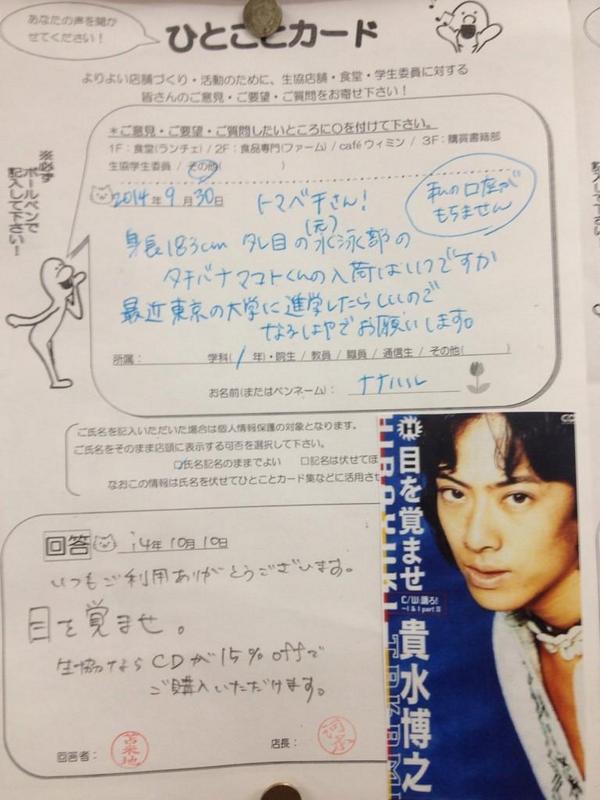 あなたの声を聞か
せてください!
ひとことカード
よりよい店舗づくり・活動のために、生協店舗・食堂・学生委員に対する
皆さんのご意見・ご要望・ご質問をお寄せ下さい!
*ご意見・ご要望・ご質問したいところに○を付けて下さい。
1F:食堂(ランチェ) / 2F:食品専門(ファーム) / caféウィミン / 3F:購買書籍部
生協学生委員 / その他( )
※必ず
ボールペンで
記入して下さい!
2014年9月30日
トマベチさん!
私の口座が
もちません
身長183cm タレ目の(元)水泳部の
タチバナマコトくんの入荷はいつですか
最近東京の大学に進学したらしいので
なるはやでお願いします。
所属: 学科(1年)・院生 / 教員 / 職員 / 通信生 / その他( )
お名前(またはペンネーム): ナナハル
ご氏名を記入いただいた場合は個人情報保護の対象となります。
ご氏名をそのまま店頭に表示する可否を選択して下さい。
□氏名記名のままでよい □記名は伏せてほ
なおこの情報は氏名を伏せてひとことカード集などに活用させ
回答 14年10月10日
いつもご利用ありがとうございます。
目を覚ませ。
生協なら CDが15%offで
ご購入いただけます。
回答者: 苫米地
店長:
目を覚ませ
C/W 踊ろ!
~I & I part II
貴水博之
HIROYUKI
TAKAMI